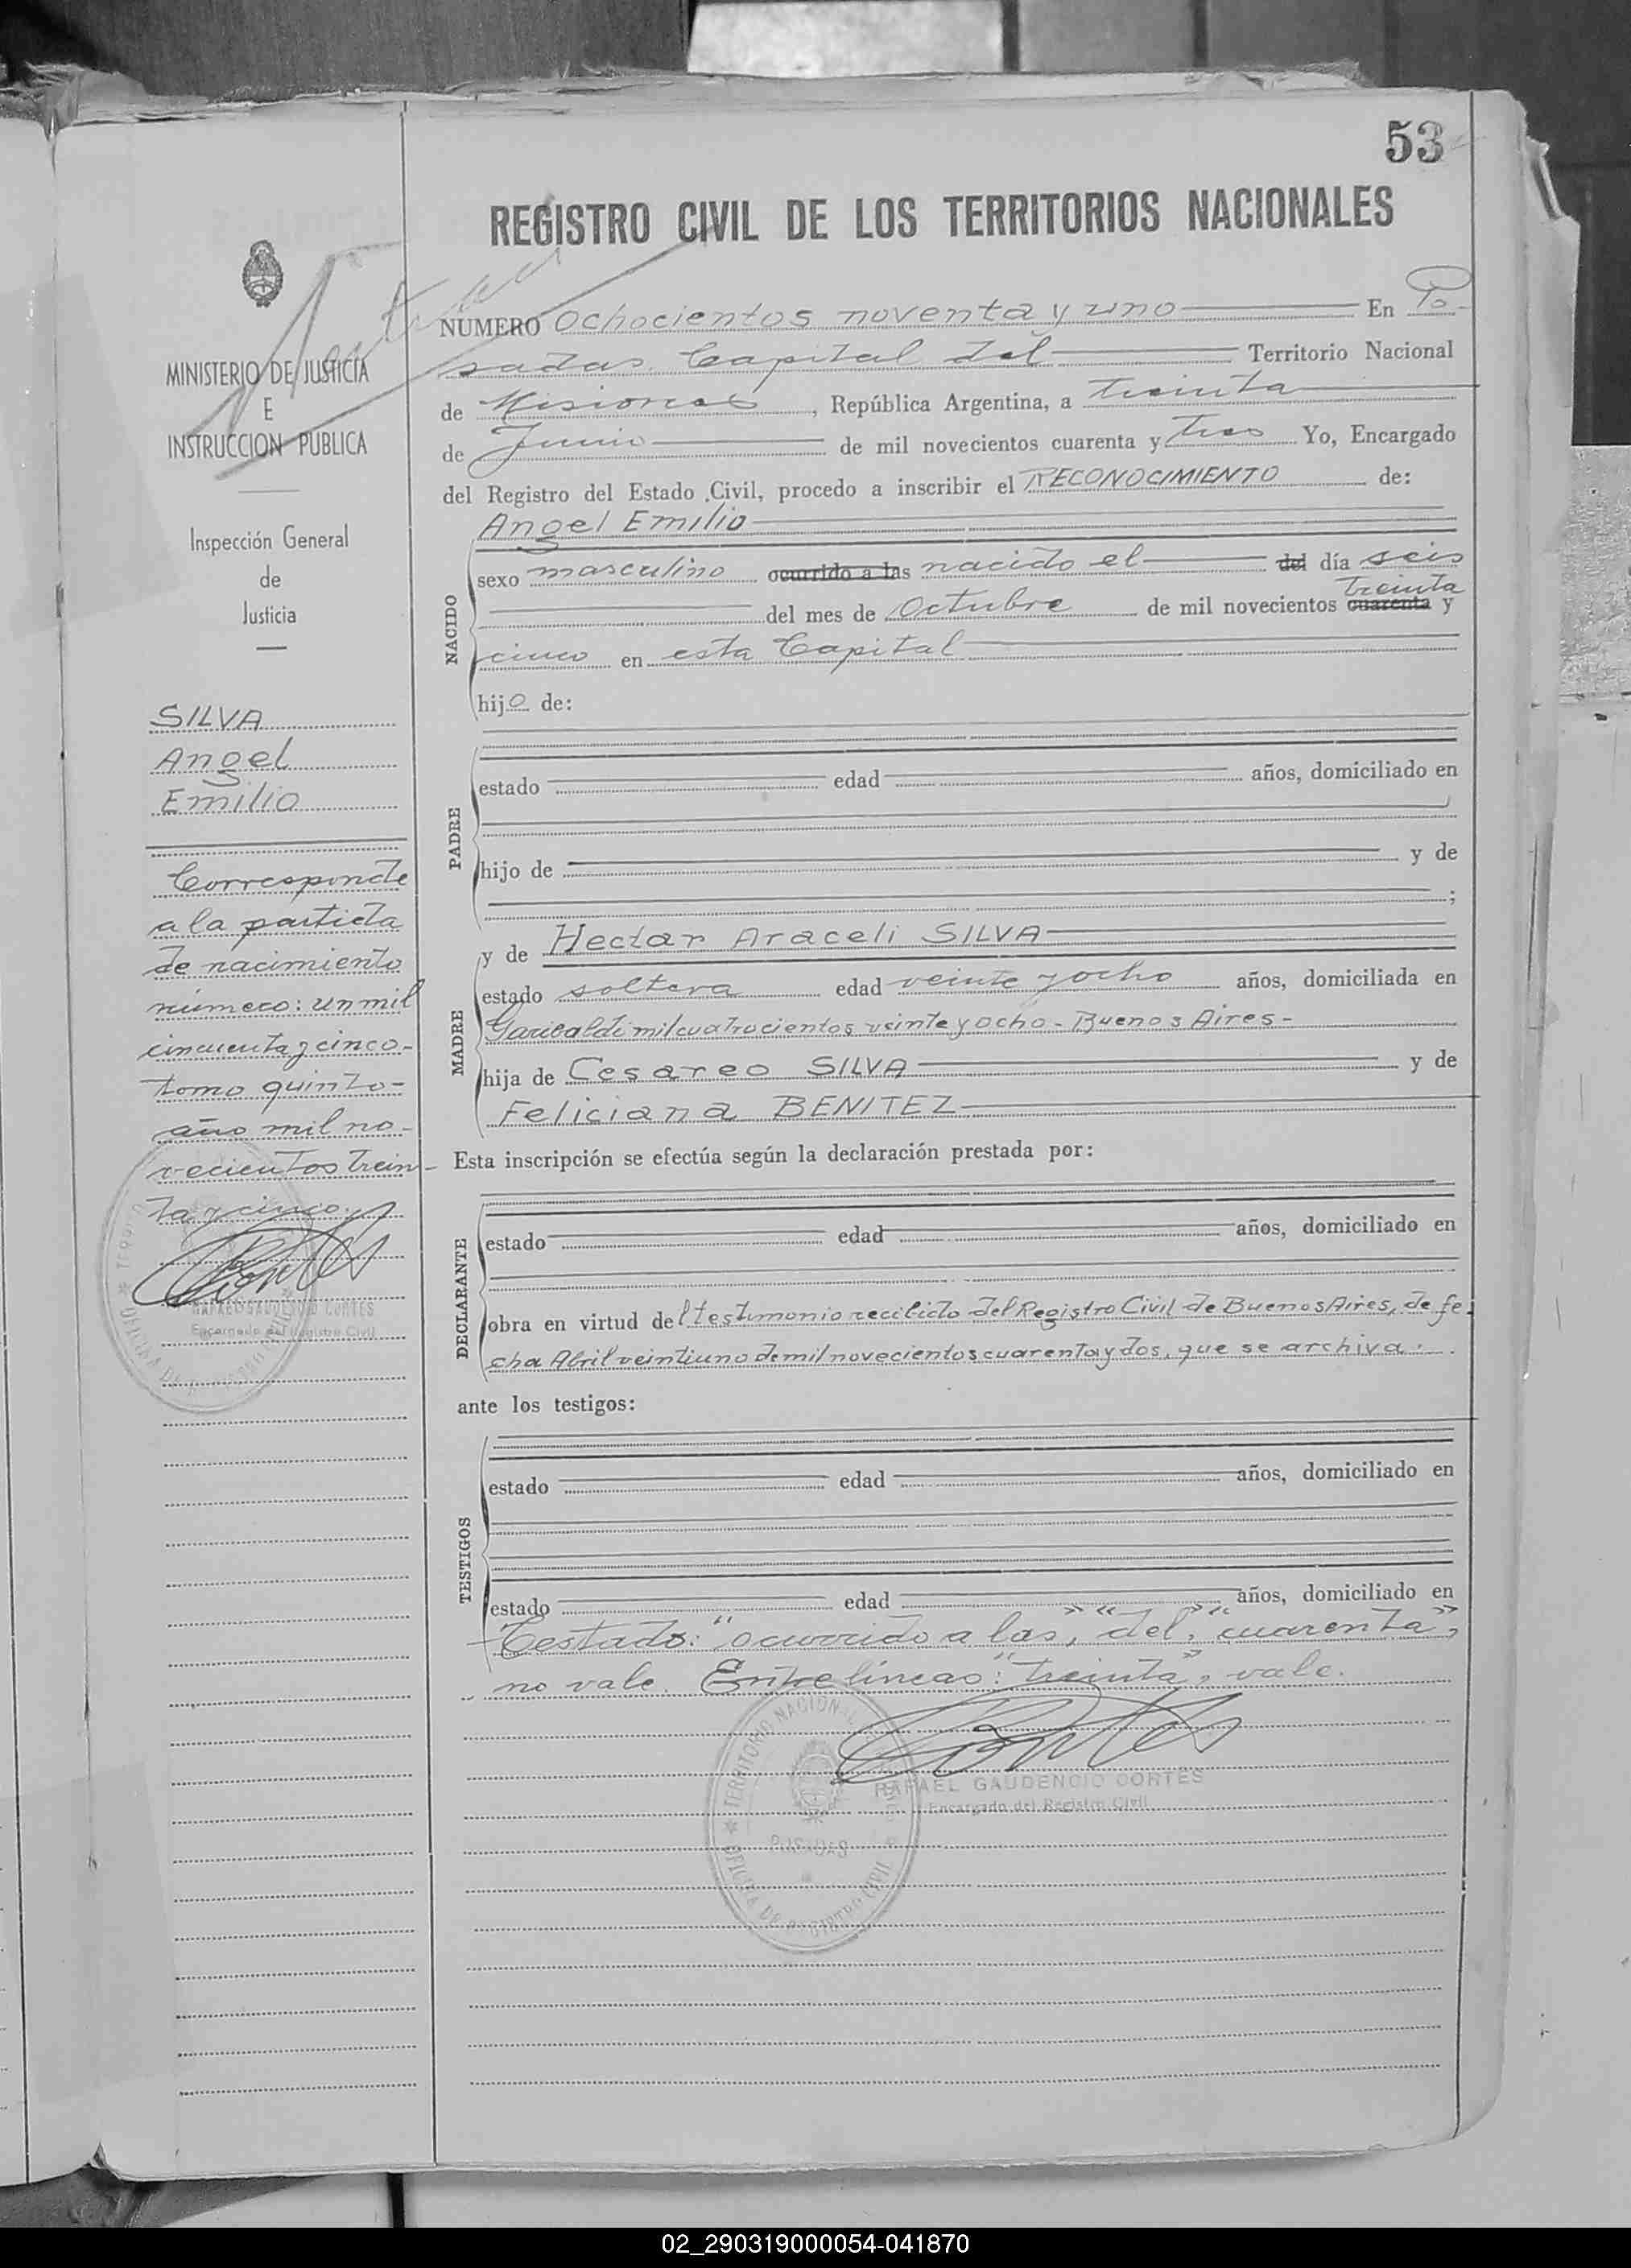 53
REGISTRO CIVIL DE LOS TERRITORIOS NACIONALES
NUMERO Ochocientos noventa y uno En Po-
sadas. Capital del Territorio Nacional
de Misiones, República Argentina, a treinta
de Junio de mil novecientos cuarenta y tres Yo, Encargado
del Registro del Estado Civil, procedo a inscribir el RECONOCIMIENTO de:
NACIDO
Angel Emilio
sexo masculino ocurrido a las nacido el del día seis
treinta
del mes de Octubre de mil novecientos cuarenta y
cinco en esta Capital
hijo de:
PADRE
estado edad años, domiciliado en
hijo de y de
;
MADRE
y de Hectar Araceli SILVA
estado soltera edad veinte y ocho años, domiciliada en
Garibaldi mil cuatrocientos veinte y ocho - Buenos Aires -
hija de Cesareo SILVA y de
Feliciana BENITEZ
Esta inscripción se efectúa según la declaración prestada por:
DECLARANTE
estado edad años, domiciliado en
obra en virtud del testimonio recibido del Registro Civil de Buenos Aires, de fe-
cha Abril veintiuno de mil novecientos cuarenta y dos, que se archiva.
ante los testigos:
TESTIGOS
estado edad años, domiciliado en
estado edad años, domiciliado en
Testado: "ocurrido a las", "del", "cuarenta",
no vale. Entre líneas: "treinta", vale.
Cortés
RAFAEL GAUDENCIO CORTES
Encargado del Registro Civil
TERRITORIO NACIONAL
POSADAS
OFICINA DE REGISTRO CIVIL
MINISTERIO DE JUSTICIA
E
INSTRUCCION PUBLICA
Inspección General
de
Justicia
SILVA
Angel
Emilio
Corresponde
a la partida
de nacimiento
número: un mil
cincuenta y cinco-
tomo quinto-
año mil no-
vecientos trein-
ta y cinco.
Cortés
RAFAEL GAUDENCIO CORTES
Encargado del Registro Civil
02_290319000054-041870